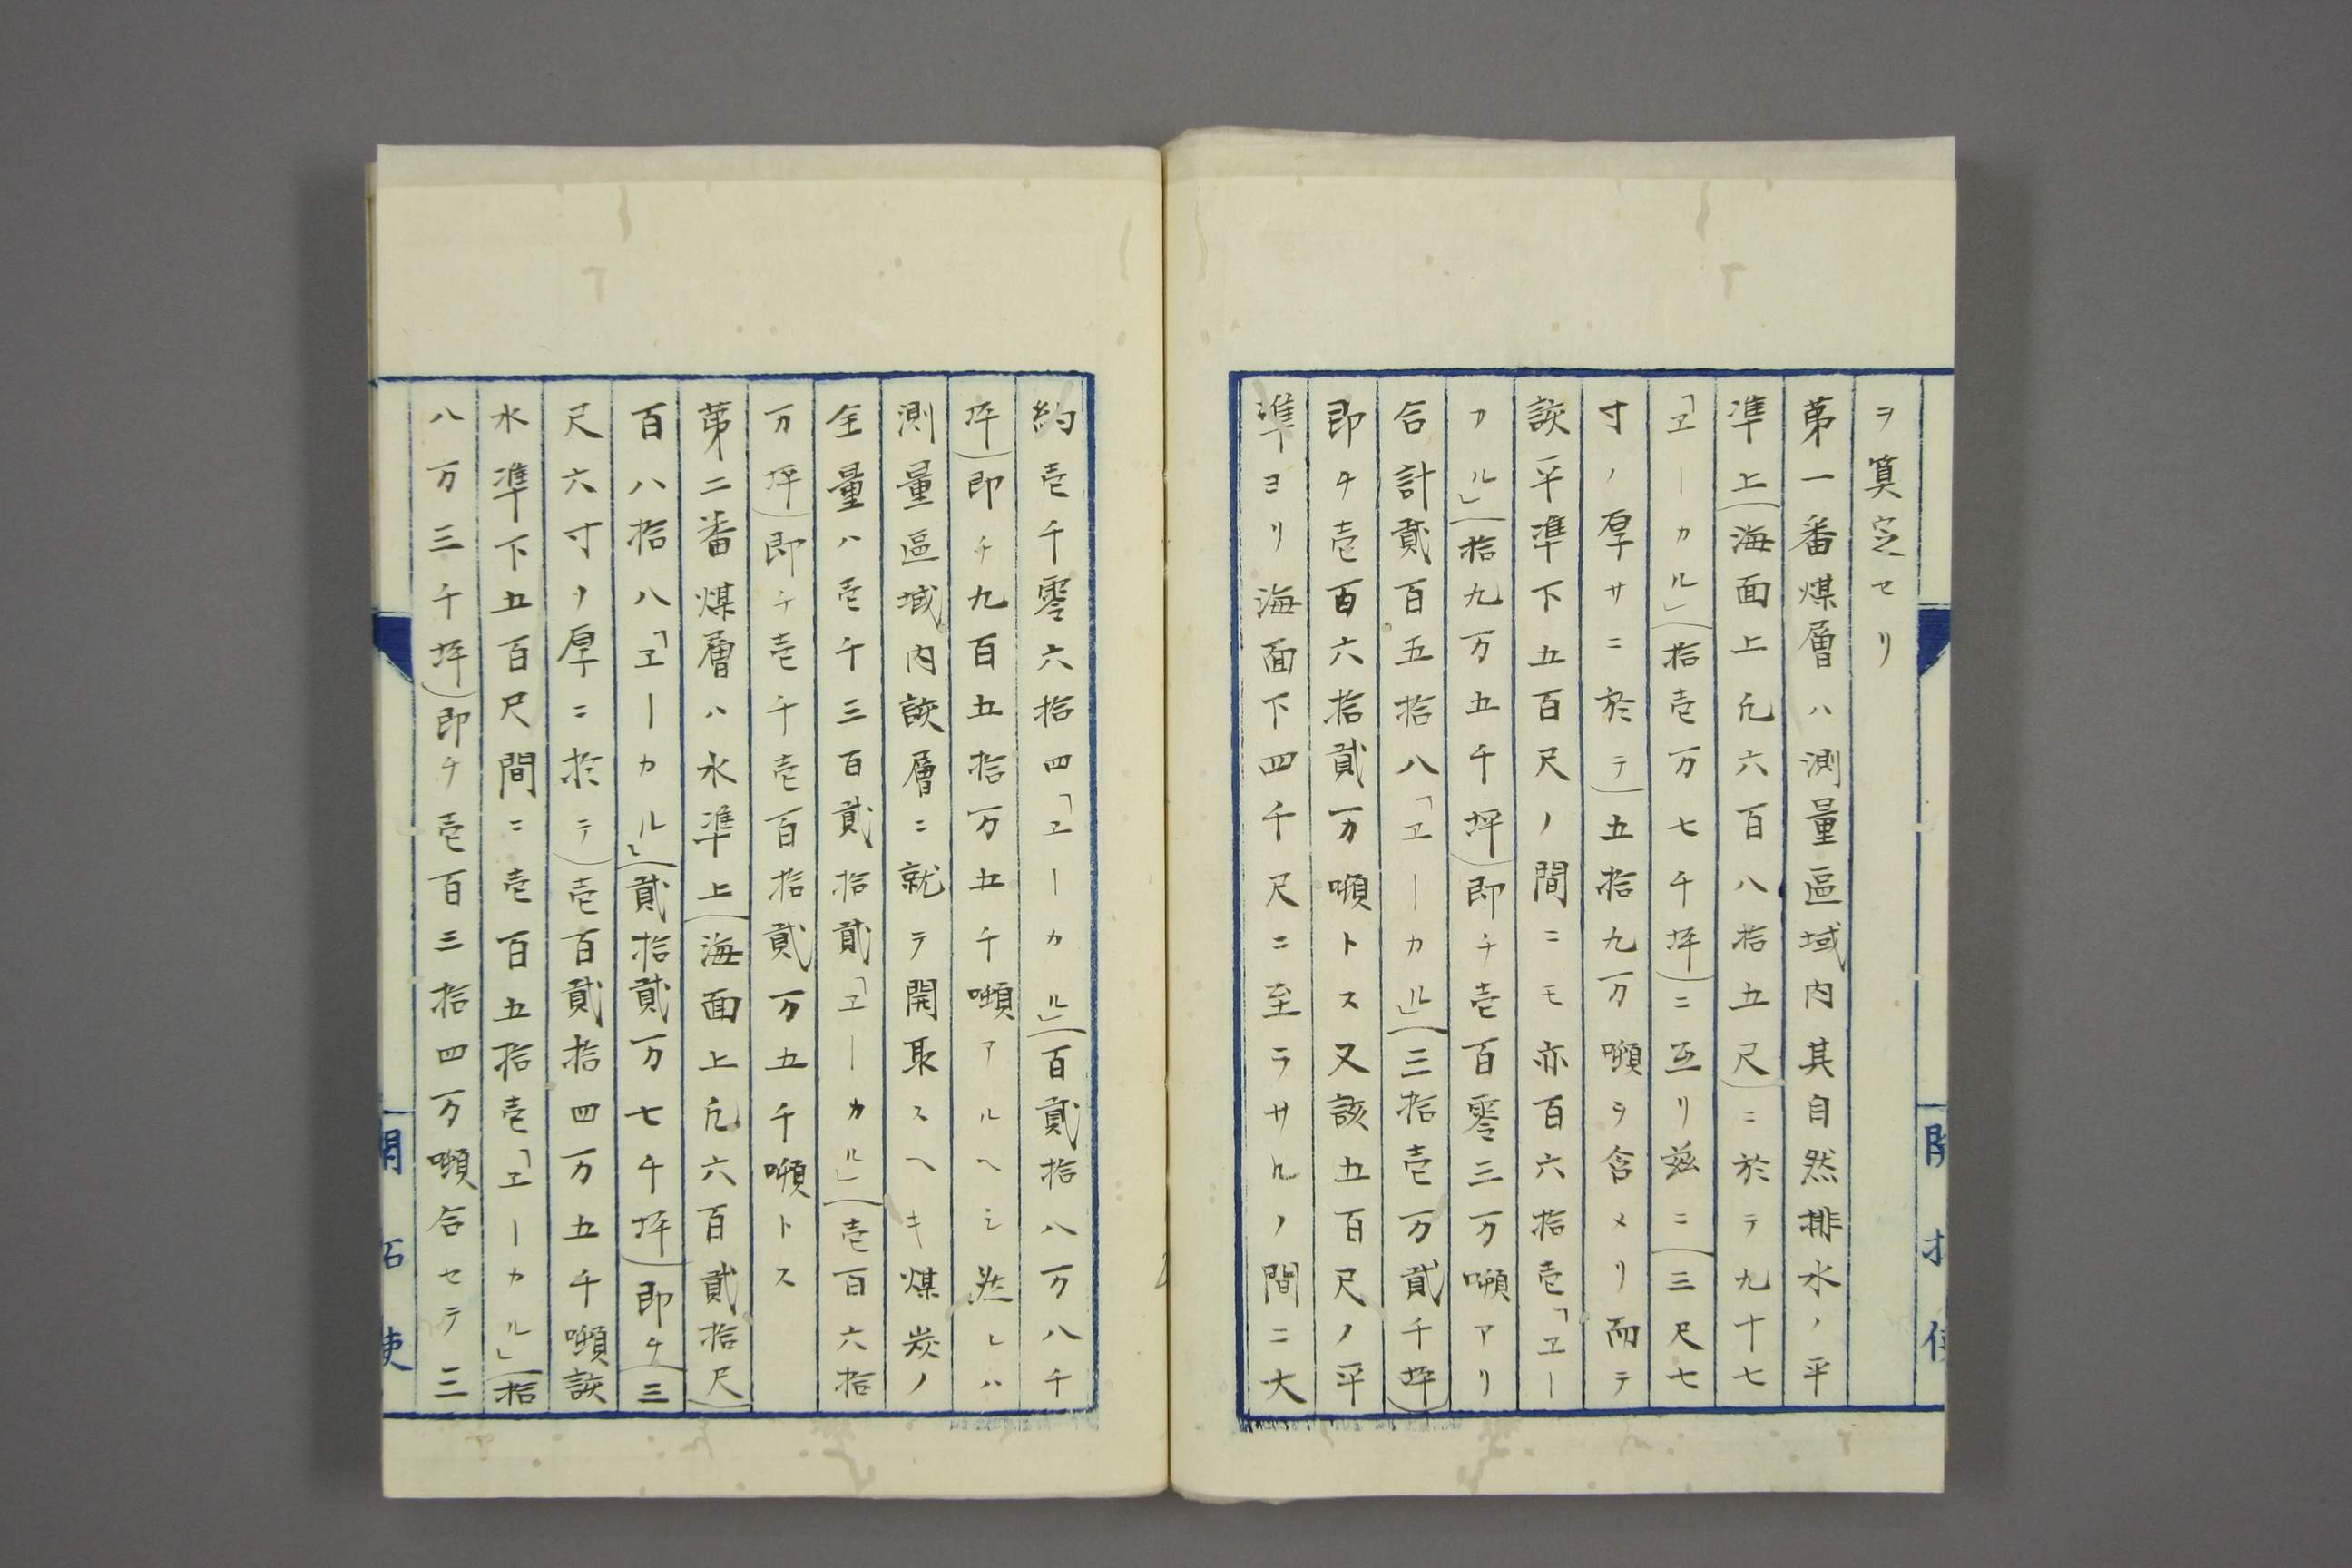 ヲ算定セリ
第一番煤層ハ測量區域内其自然排水ノ平
準上(海面上凡六百八拾五尺)ニ於テ九十七
「ヱーカル」(拾壱万七千坪)ニ亙リ茲ニ(三尺七
寸ノ厚サニ於テ)五拾九万噸ヲ含メリ而テ
該平準下五百尺ノ間ニモ亦百六拾壱「ヱー
カル」(拾九万五千坪)即チ壱百零三万噸アリ
合計貳百五拾八「ヱーカル」(三拾壱万貳千坪)
即チ壱百六拾貳万噸トス又該五百尺ノ平
準ヨリ海面下四千尺ニ至ラサルノ間ニ大
開拓使
約壱千零六拾四「ヱーカル」(百貳拾八万八千
坪)即チ九百五拾万五千噸アルヘシ然レハ
測量區域内該層ニ就テ開取スヘキ煤炭ノ
全量ハ壱千三百貳拾貳「ヱーカル」(壱百六拾
万坪)即チ壱千壱百拾貳万五千噸トス
第二番煤層ハ水準上(海面上凡六百貳拾尺)
百八拾八「ヱーカル」(貳拾貳万七千坪)即チ(三
尺六寸ノ厚ニ於テ)壱百貳拾四万五千噸該
水準下五百尺間ニ壱百五拾壱「ヱーカル」(拾
八万三千坪)即チ壱百三拾四万噸合セテ三
開拓使